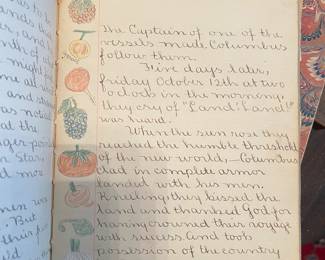 nds o
ar, and
nth of
might
me all
and st
was not
at the
ger po
n Star,
nd me
men w
But
The Captain of one of the
vessels made Columbus
follow them.
Five days later,
friday October 12th at two
o'clock in the morning,
they cry of "Land! Land!"
was heard.
When the sun rose they
reached the humble threshold
of the new world,—Columbus
clad in complete armor
landed with his men.
Kneeling, they kissed the
land and thanked God for
having crowned their voyage
with success. And took
possession of the country